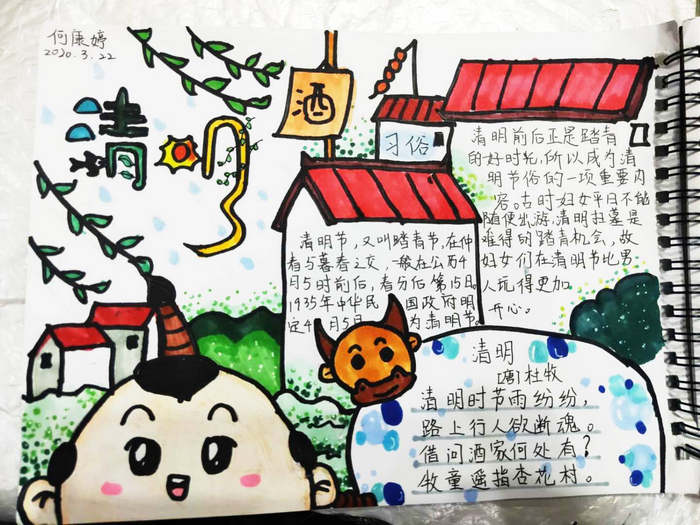 何康婷
2020.3.22
清明
酒
习俗
清明节,又叫踏青节,在仲
春与暮春之交,一般在公历4
月5时前后,春分后第15日。
1935年中华民国政府明
定4月5日为清明节。
清明前后正是踏青
的好时光,所以成为清
明节俗的一项重要内
容。古时妇女平日不能
随便出游,清明扫墓是
难得的踏青机会,故
妇女们在清明节比男
人玩得更加
开心。
清明
[唐]杜牧
清明时节雨纷纷,
路上行人欲断魂。
借问酒家何处有?
牧童遥指杏花村。